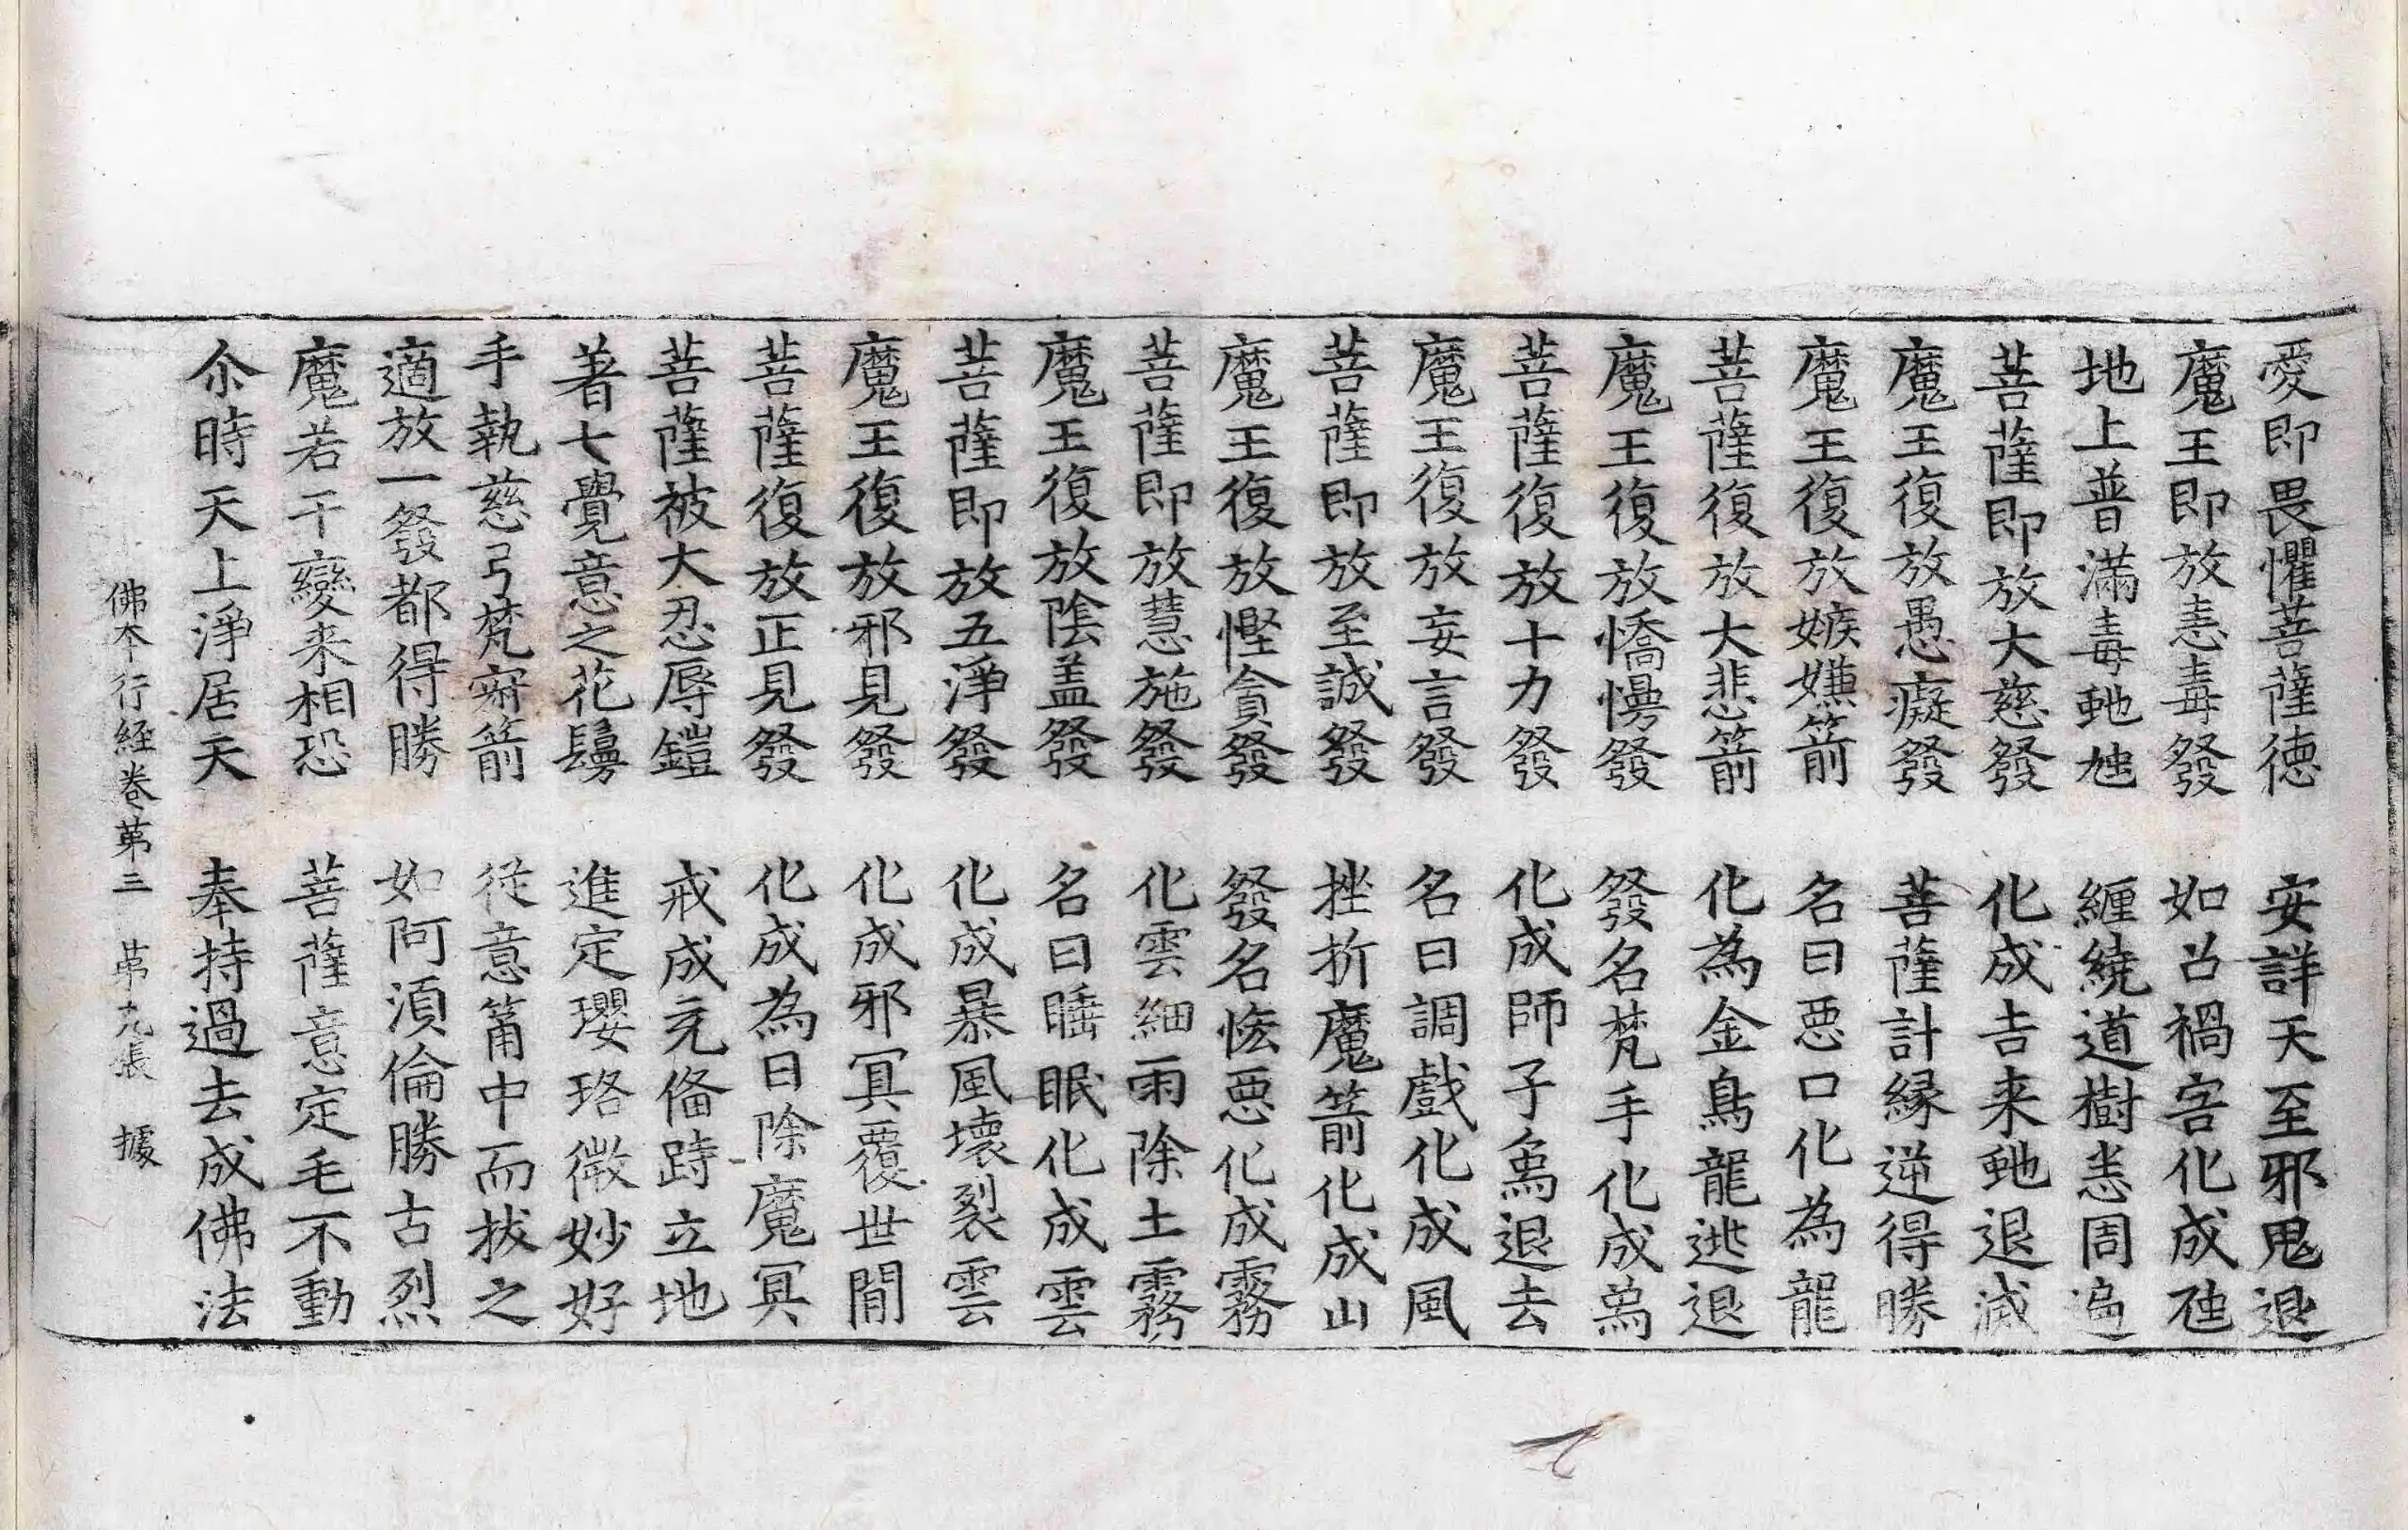 愛即畏懼菩薩徳　安詳天至邪鬼退
魔王即放恚毒發　如召禍害化成虺
地上普滿毒虵虺　纏繞道樹悉周遍
菩薩即放大慈發　化成吉来虵退滅
魔王復放愚癡發　菩薩計縁逆得勝
魔王復放嫉嫌箭　名曰惡口化為龍
菩薩復放大悲箭　化為金鳥龍逃退
魔王復放憍慢發　發名梵手化成為
菩薩復放十力發　化成師子象退去
魔王復放妄言發　名曰調戲化成風
菩薩即放至誠發　挫折魔箭化成山
魔王復放慳貪發　發名恡惡化成霧
菩薩即放慧施發　化雲細雨除土霧
魔王復放陰盖發　名曰睡眠化成雲
菩薩即放五淨發　化成暴風壞裂雲
魔王復放邪見發　化成邪冥覆世閒
菩薩復放正見發　化成為日除魔冥
菩薩被大忍辱鎧　戒成充俻跱立地
著七覺意之花鬘　進定瓔珞微妙好
手執慈弓梵寂箭　從意箭中而拔之
適放一發都得勝　如阿湏倫勝古烈
魔若干變来相恐　菩薩意定毛不動
尒時天上淨居天　奉持過去成佛法
佛本行經卷苐三　苐九張　據